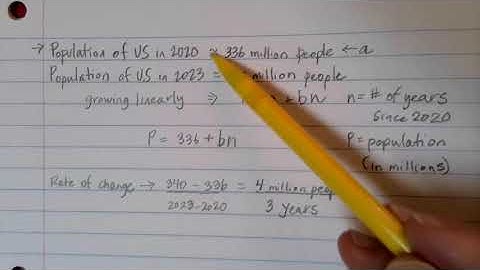 → Population of US in 2020 ≈ 336 million people ← a
Population of US in 2023 = million people
growing linearly ⇒ + bn n = # of years
since 2020
P = 336 + bn P = population
(in millions)
Rate of change → 340 - 336 = 4 million
2023-2020 3 years